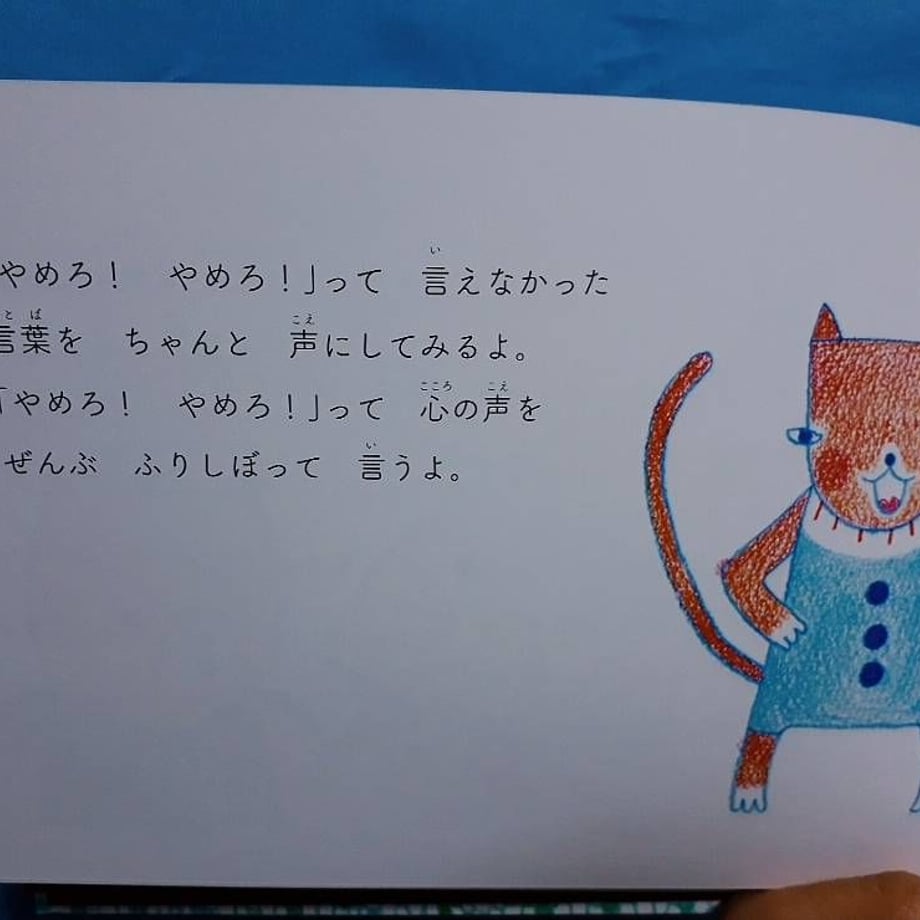 やめろ！　やめろ！」って　言えなかった
言葉を　ちゃんと　声にしてみるよ。
「やめろ！　やめろ！」って　心の声を
ぜんぶ　ふりしぼって　言うよ。